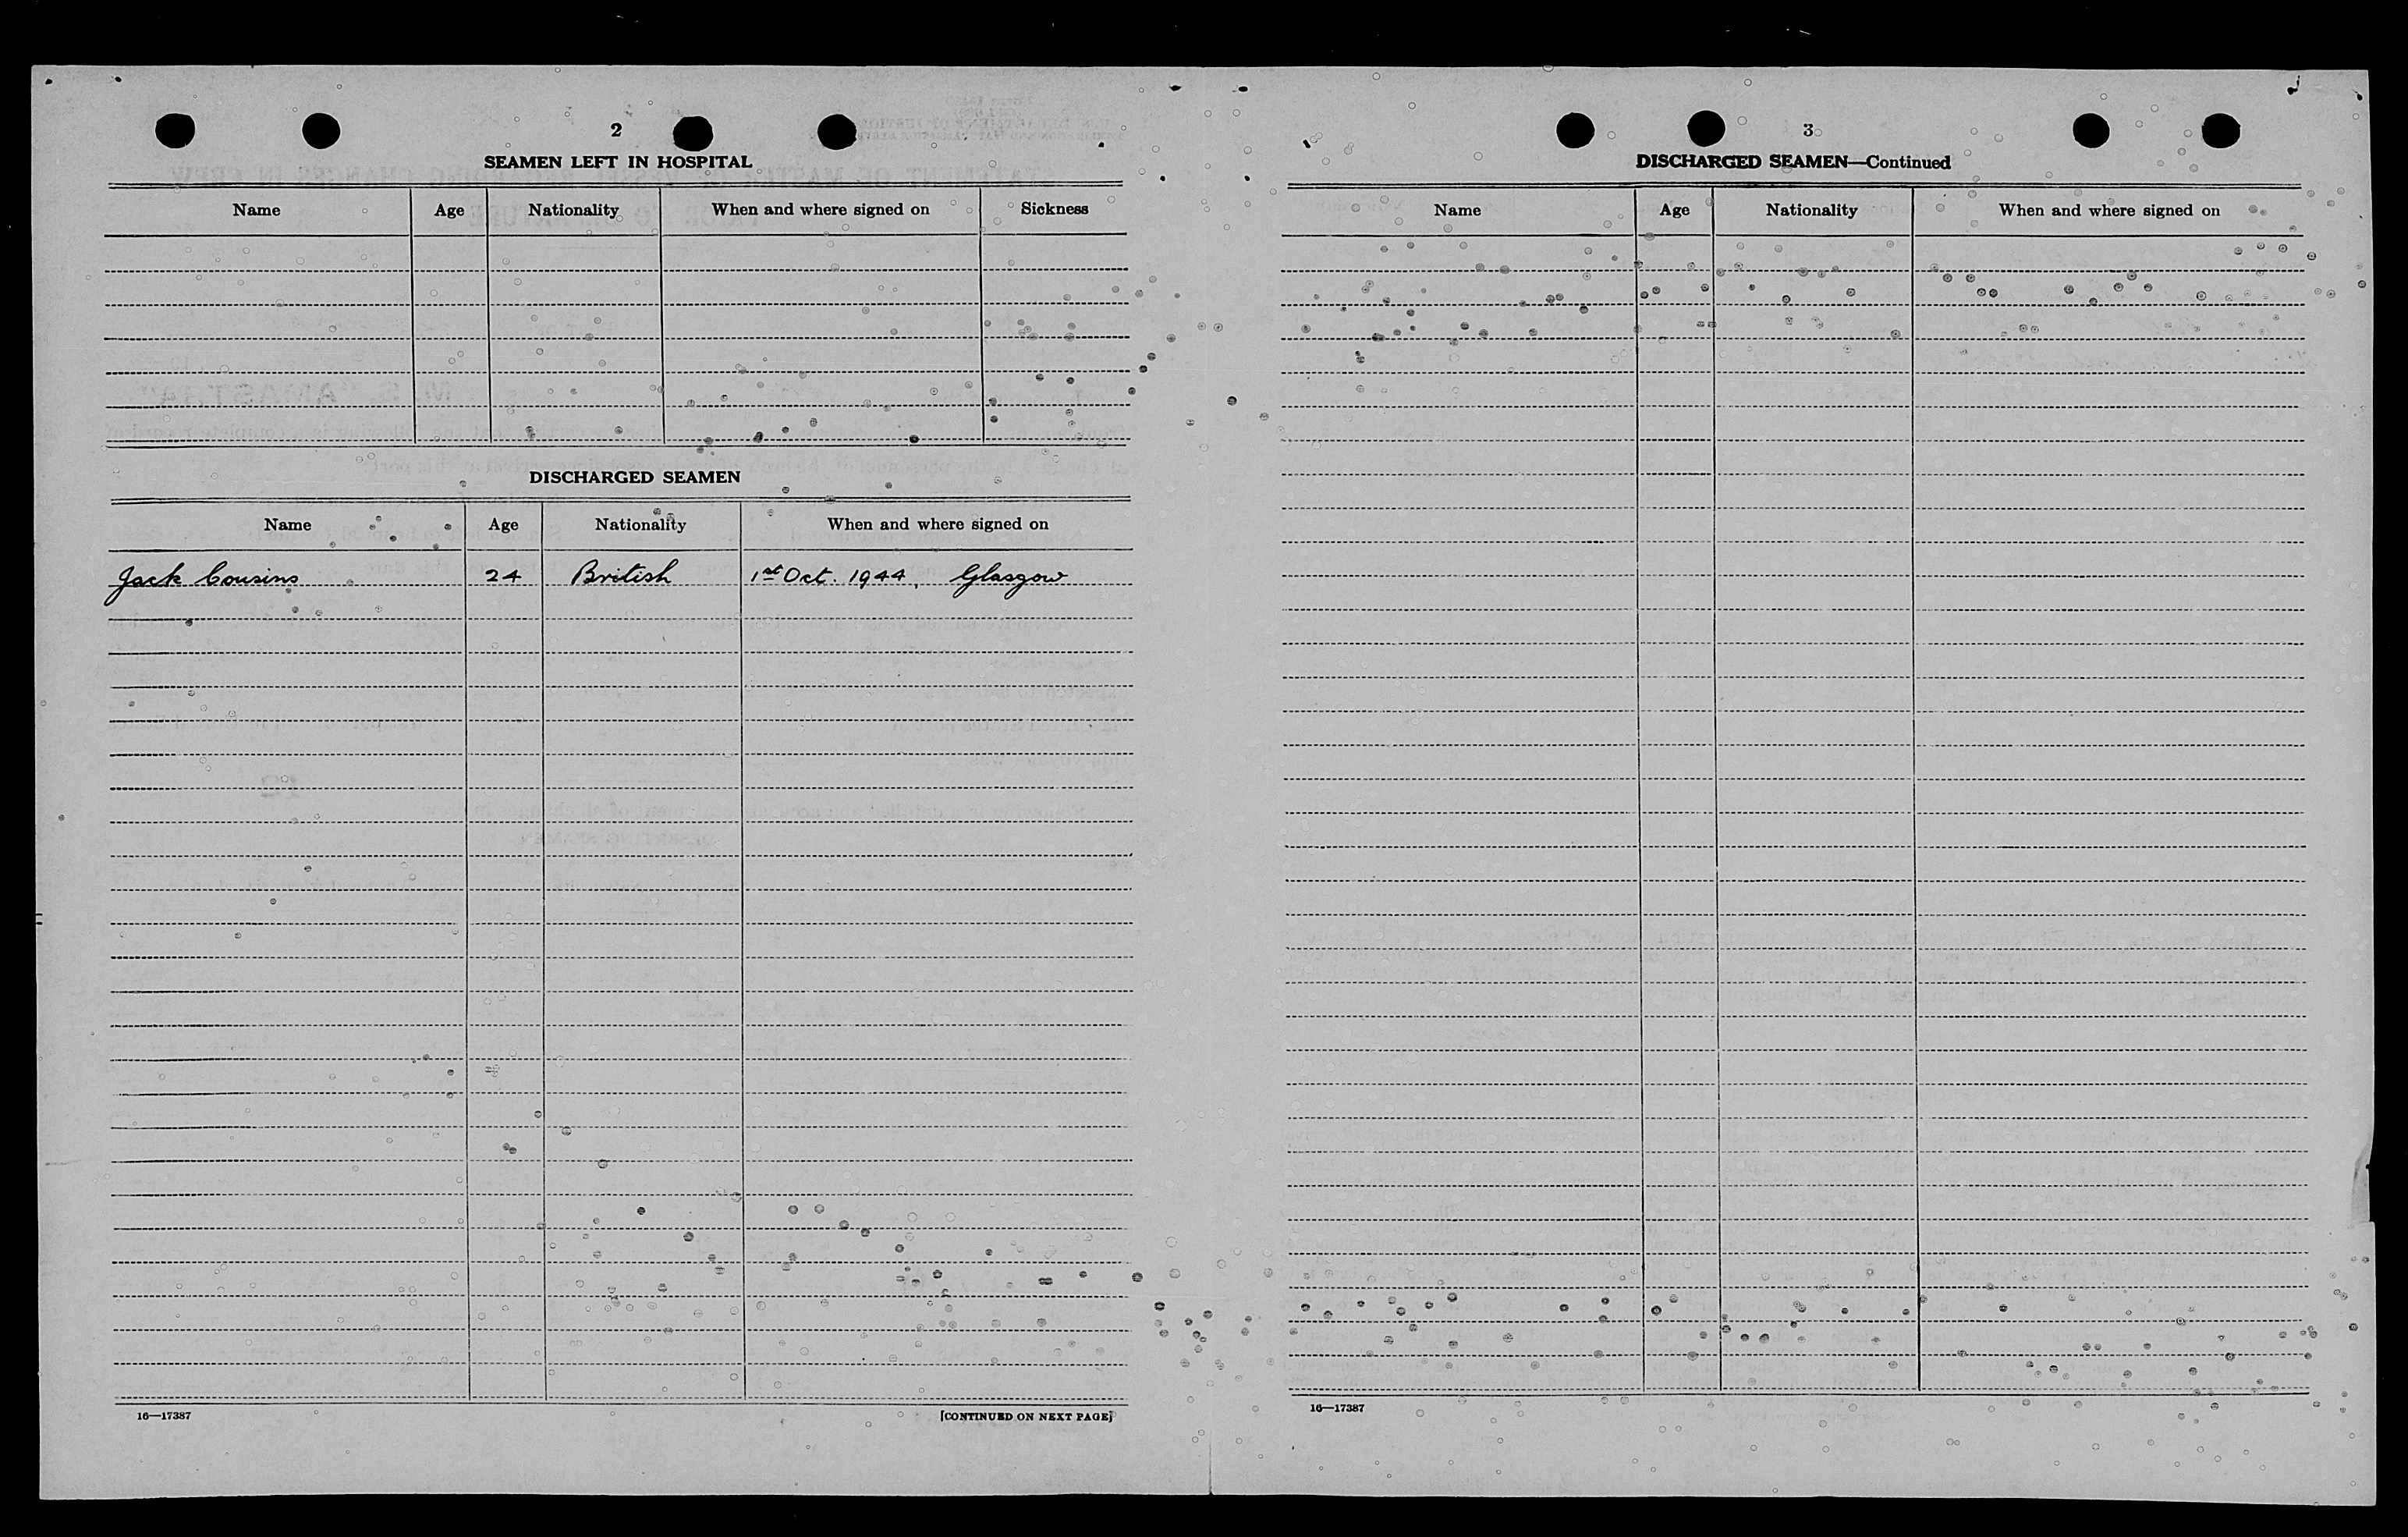 2
SEAMEN LEFT IN HOSPITAL
Name Age Nationality When and where signed on Sickness
DISCHARGED SEAMEN
Name Age Nationality When and where signed on
Jack Cousins 24 British 1st Oct. 1944, Glasgow
16—17387 [CONTINUED ON NEXT PAGE]
3
DISCHARGED SEAMEN—Continued
Name Age Nationality When and where signed on
16—17387